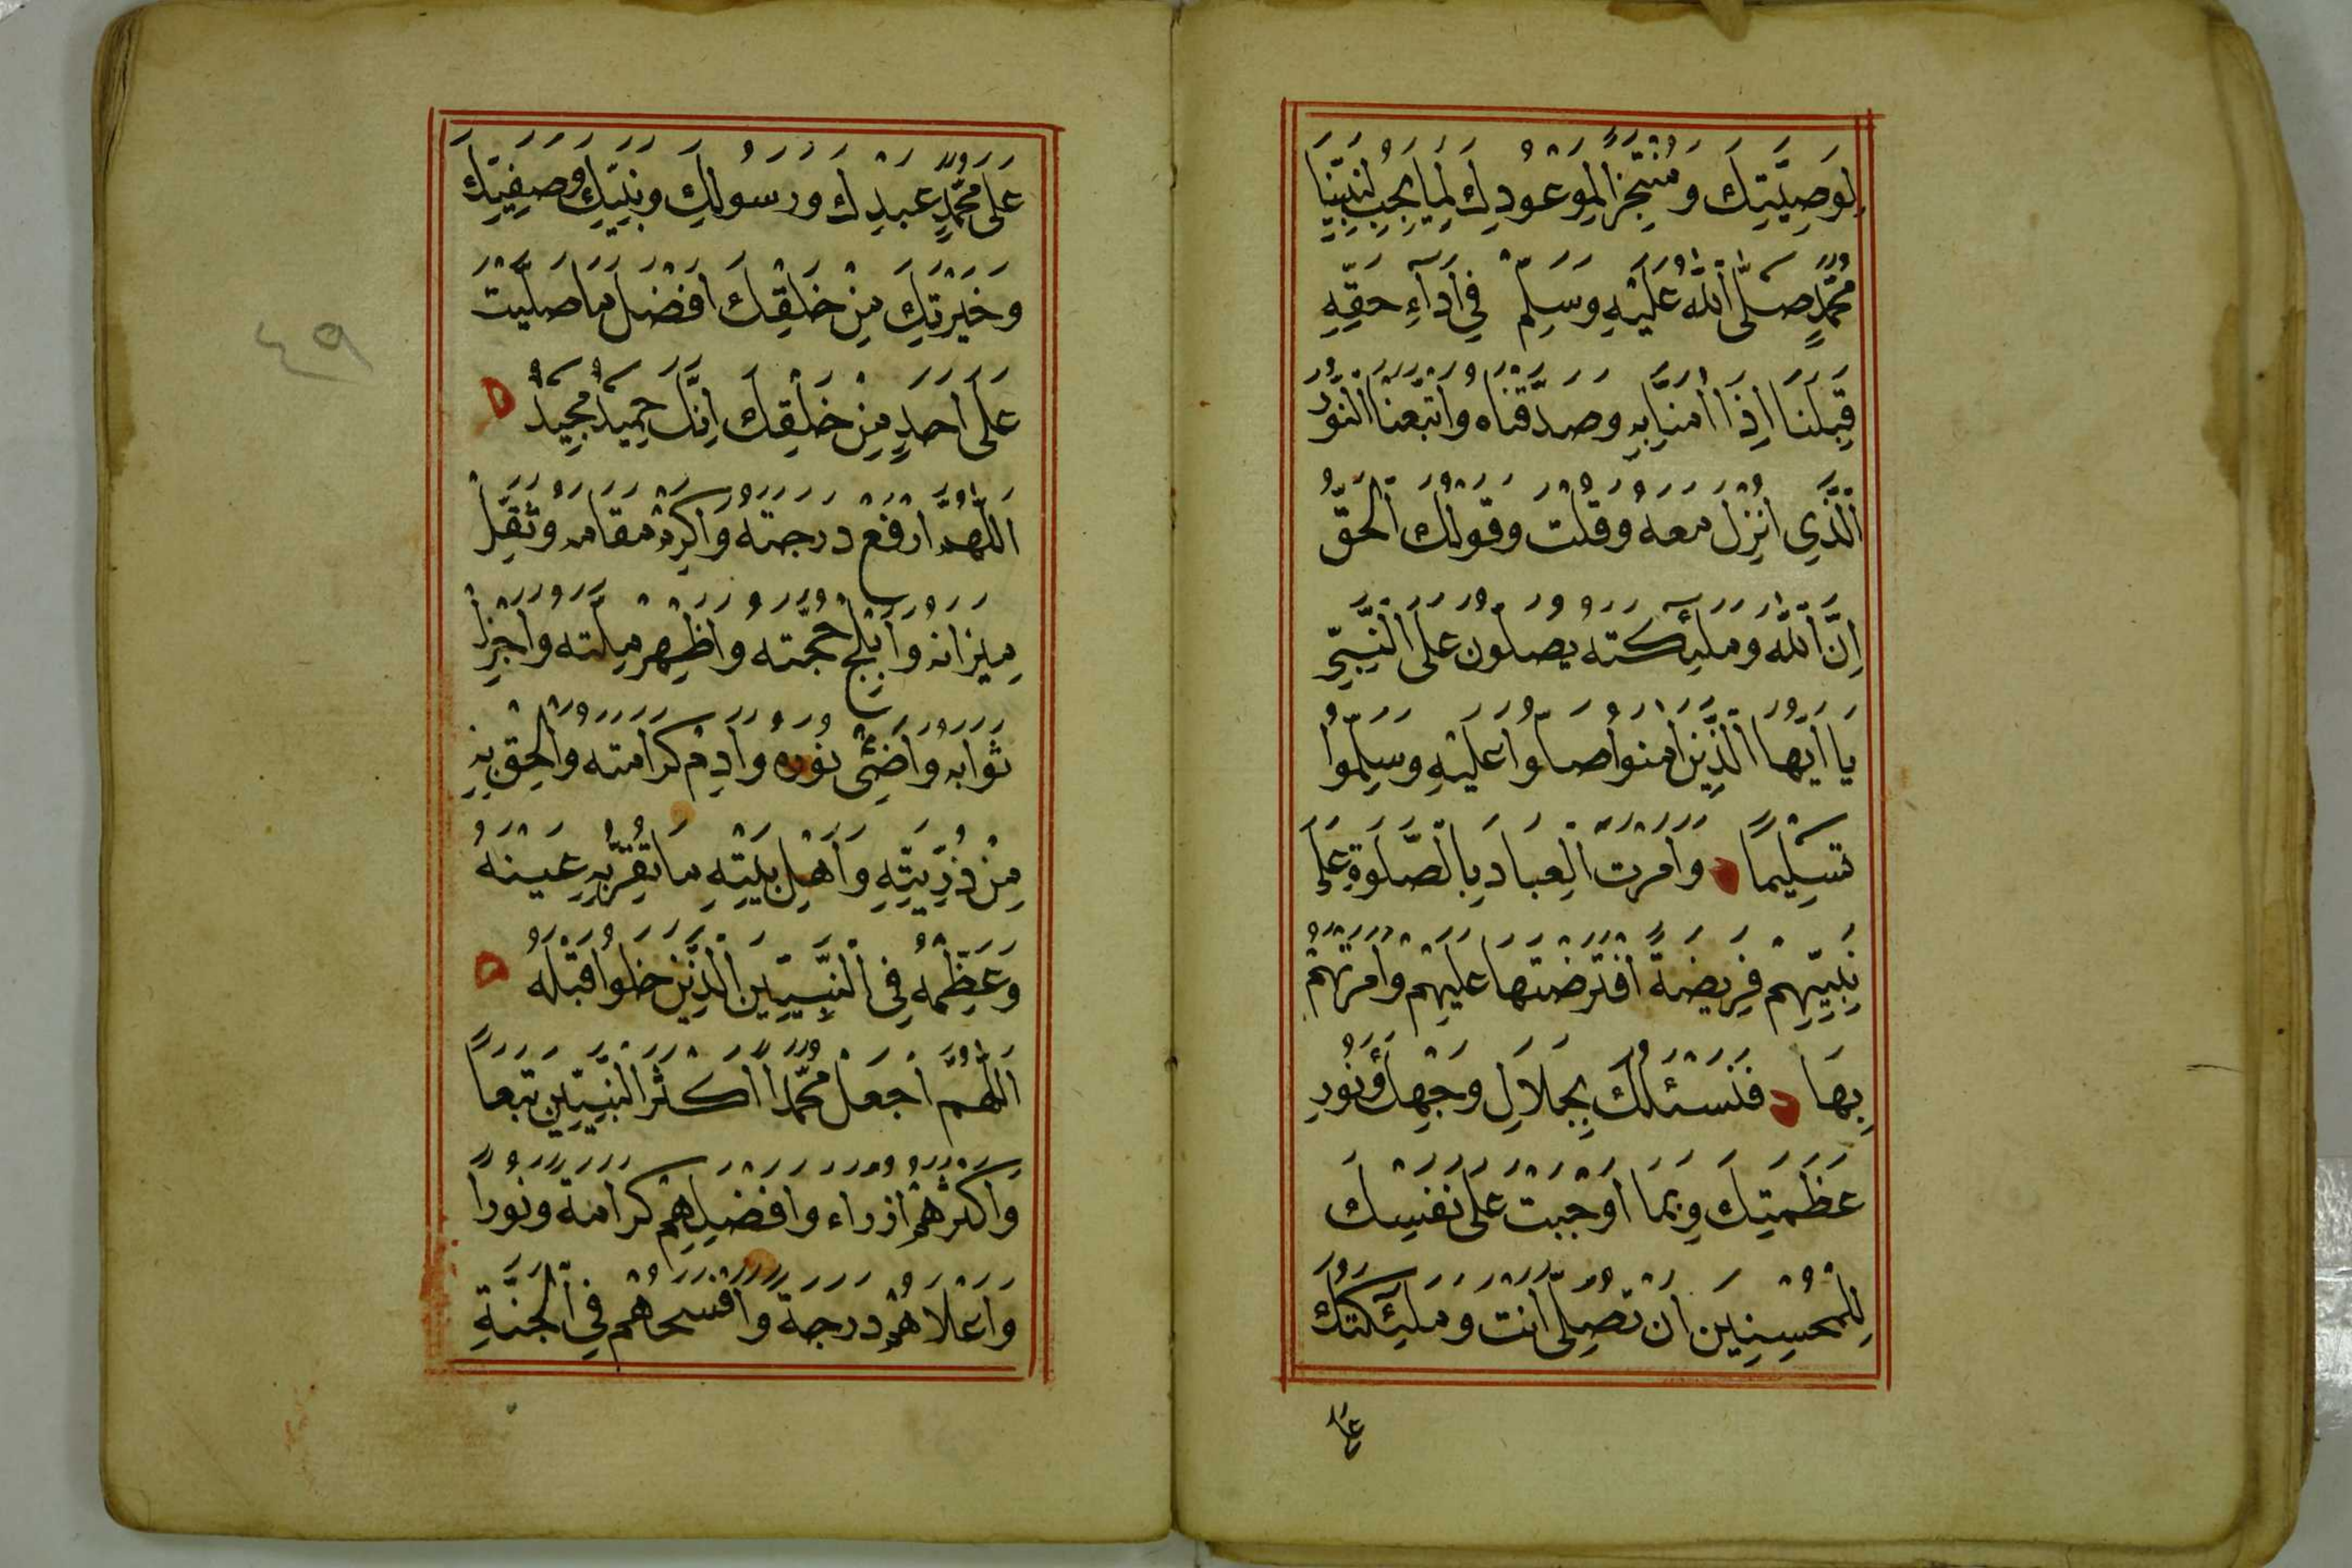 لِوَصِيَّتِكَ وَمُنْتَجِزًا لِمَوْعُودِكَ لِمَا يَجِبُ لِنَبِيِّنَا
مُحَمَّدٍ صَلَّى اللّٰهُ عَلَيْهِ وَسَلَّمَ فِي أَدَآءِ حَقِّهِ
قِبَلَنَا اِذَا اٰمَنَّا بِهِ وَصَدَّقْنَاهُ وَاتَّبَعْنَا النُّوْرَ
الَّذِي اُنْزِلَ مَعَهُ وَقُلْتَ وَقَوْلُكَ الْحَقُّ
اِنَّ اللّٰهَ وَمَلٰٓئِكَتَهُ يُصَلُّونَ عَلَى النَّبِيِّ
يَا اَيُّهَا الَّذِينَ اٰمَنُوا صَلُّوا عَلَيْهِ وَسَلِّمُوا
تَسْلِيمًا وَاَمَرْتَ الْعِبَادَ بِالصَّلٰوةِ عَلَى
نَبِيِّهِمْ فَرِيضَةً افْتَرَضْتَهَا عَلَيْهِمْ وَاَمَرْتَهُمْ
بِهَا فَنَسْئَلُكَ بِجَلَالِ وَجْهِكَ وَنُورِ
عَظَمَتِكَ وَبِمَا اَوْجَبْتَ عَلَى نَفْسِكَ
لِلْمُحْسِنِينَ اَنْ تُصَلِّيَ اَنْتَ وَمَلٰٓئِكَتُكَ
عَلَى
عَلَى مُحَمَّدٍ عَبْدِكَ وَرَسُولِكَ وَنَبِيِّكَ وَصَفِيِّكَ
وَخَيْرَتِكَ مِنْ خَلْقِكَ اَفْضَلَ مَا صَلَّيْتَ
عَلَى اَحَدٍ مِنْ خَلْقِكَ اِنَّكَ حَمِيدٌ مَجِيدٌ
اَللّٰهُمَّ ارْفَعْ دَرَجَتَهُ وَاَكْرِمْ مَقَامَهُ وَثَقِّلْ
مِيزَانَهُ وَاَبْلِجْ حُجَّتَهُ وَاَظْهِرْ مِلَّتَهُ وَاَجْزِلْ
ثَوَابَهُ وَاَضِئْ نُورَهُ وَاَدِمْ كَرَامَتَهُ وَاَلْحِقْ بِهِ
مِنْ ذُرِّيَّتِهِ وَاَهْلِ بَيْتِهِ مَا تَقَرُّ بِهِ عَيْنُهُ
وَعَظِّمْهُ فِى النَّبِيِّينَ الَّذِينَ خَلَوْا قَبْلَهُ
اَللّٰهُمَّ اجْعَلْ مُحَمَّدًا اَكْثَرَ النَّبِيِّينَ تَبَعًا
وَاَكْثَرَهُمْ اَزْرَاءَ وَاَفْضَلَهُمْ كَرَامَةً وَنُورًا
وَاَعْلَاهُمْ دَرَجَةً وَاَفْسَحَهُمْ فِي الْجَنَّةِ
٤٩